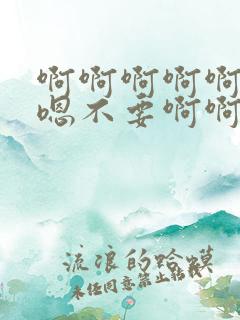 啊啊啊啊啊
嗯不要啊啊
流浪的蛤蟆
未经同意禁止转载